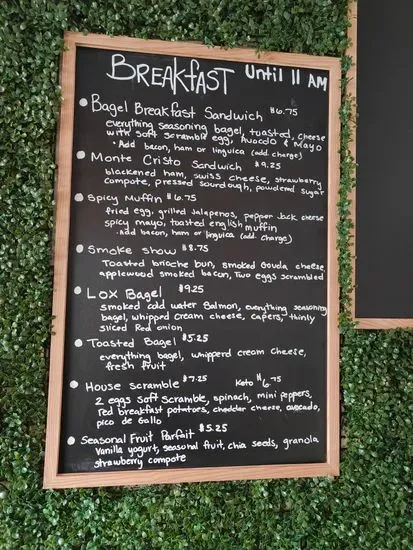 BREAKFAST Until 11 AM
Bagel Breakfast Sandwich $6.75
everything seasoning bagel, toasted, cheese
with soft scramble egg, Avocado & Mayo
• Add bacon, ham or linguica (add. charge)
Monte Cristo Sandwich $9.25
blackened ham, swiss cheese, strawberry
compote, pressed sourdough, powdered sugar
Spicy Muffin $6.75
fried egg, grilled Jalapenos, pepper Jack cheese
spicy mayo, toasted english muffin
• Add bacon, ham or linguica (add. charge)
Smoke show $8.75
Toasted brioche bun, smoked Gouda cheese,
applewood smoked bacon, Two eggs scrambled
Lox Bagel $9.25
smoked cold water Salmon, everything seasoning
bagel, whipped cream cheese, capers, thinly
sliced Red onion
Toasted Bagel $5.25
everything bagel, whipperd cream Cheese,
fresh fruit
House scramble $7.25 Keto $6.75
2 eggs soft scramble, spinach, mini peppers,
red breakfast potatoes, cheddar cheese, avocado,
pico de Gallo
Seasonal Fruit Parfait $5.25
Vanilla yogurt, seasonal fruit, chia seeds, granola
strawberry compote